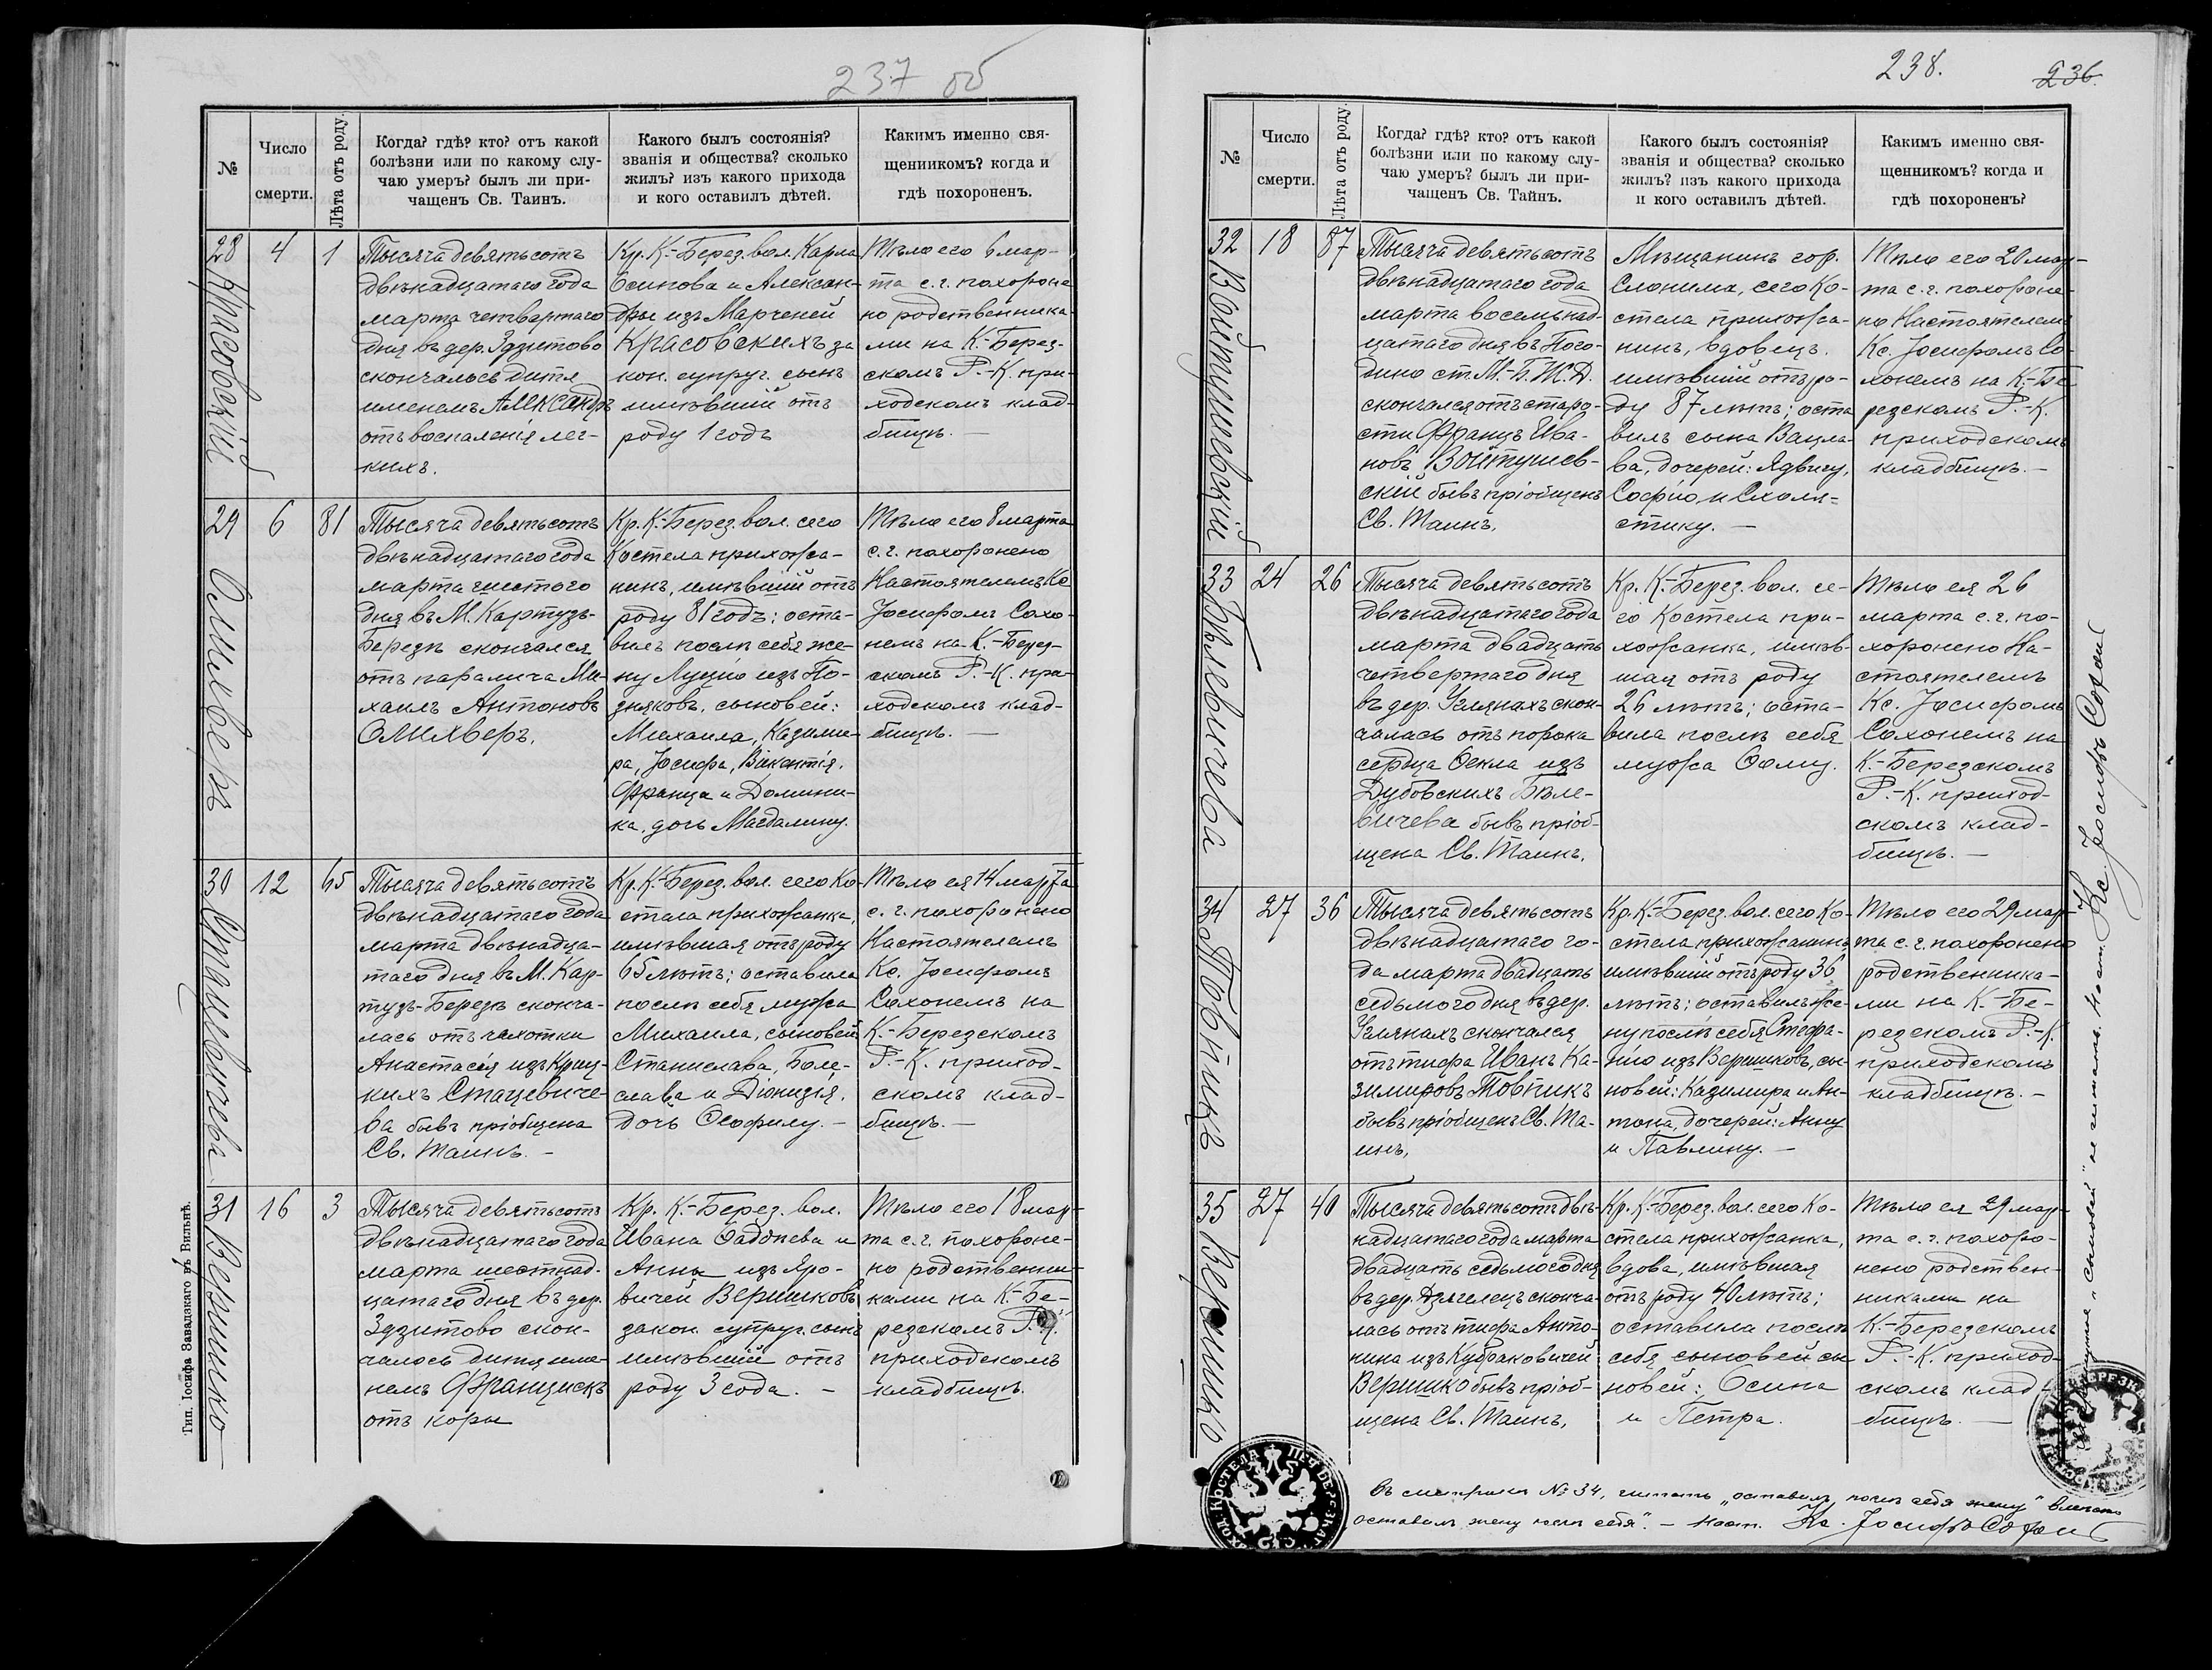 237 об
№
Число
смерти.
Лѣта отъ роду.
Когда? гдѣ? кто? отъ какой
болѣзни или по какому слу-
чаю умеръ? былъ ли при-
чащенъ Св. Таинъ.
Какого былъ состоянія?
званія и общества? сколько
жилъ? изъ какого прихода
и кого оставилъ дѣтей.
Какимъ именно свя-
щенникомъ? когда и
гдѣ похороненъ.
28
Красовскій
4
1
Тысяча девятьсотъ
двѣнадцатаго года
марта четвертаго
дня въ дер. Здзитово
скончалось дитя
именемъ Александръ
отъ воспаленія лег-
кихъ.
Кр. К.-Берез. вол. Карла
Осипова и Алексан-
дры изъ Марченей
Красовскихъ за
кон. супруг. сынъ
имѣвшій отъ
роду 1 годъ
Тѣло его 6 мар-
та с.г. похороне
но родственника-
ми на К.-Берез-
скомъ Р.-К. при-
ходскомъ клад-
бищѣ. —
29
Олихверъ
6
81
Тысяча девятьсотъ
двѣнадцатаго года
марта шестого
дня въ М. Картузъ-
Березѣ скончался
отъ паралича Ми-
хаилъ Антоновъ
Олихверъ.
Кр. К.-Берез. вол. сего
Костела прихожа-
нинъ, имѣвшій отъ
роду 81 годъ; оста-
вилъ послѣ себя же-
ну Луцію изъ По-
зняковъ, сыновей:
Михаила, Казими-
ра, Іосифа, Викентія,
Франца и Домини-
ка, дочь Магдалину.
Тѣло его 8 марта
с.г. похоронено
Настоятелемъ Кс.
Іосифомъ Сохо-
немъ на К.-Берез-
скомъ Р.-К. при-
ходскомъ клад-
бищѣ. —
30
Стацевичева
12
65
Тысяча девятьсотъ
двѣнадцатаго года
марта двѣнадца-
таго дня въ М. Кар-
тузъ-Березѣ сконча-
лась отъ чахотки
Анастасія изъ Криц-
кихъ Стацевиче-
ва бывъ пріобщена
Св. Таинъ. -
Кр. К.-Берез. вол. сего Ко-
стела прихожанка,
имѣвшая отъ роду
65 лѣтъ; оставила
послѣ себя мужа
Михаила, сыновей
Станислава, Боле-
слава и Діонизія,
дочь Ѳеофилу. -
Тѣло ея 14 марта
с. г. похоронено
Настоятелемъ
Кс. Іосифомъ
Сохонемъ на
К.-Березскомъ
Р.-К. приход-
скомъ клад-
бищѣ. —
31
Вершико
16
3
Тысяча девятьсотъ
двѣнадцатаго года
марта шестнад-
цатаго дня въ дер.
Здзитово скон-
чалось дитя име-
немъ Францискъ
отъ коры
Кр. К.-Берез. вол.
Ивана Фаддѣева и
Анны изъ Яро-
вичей Вершиковъ
закон. супруг. сынъ
имѣвшій отъ
роду 3 года. -
Тѣло его 18 мар-
та с.г. похороне-
но родственни-
ками на К.-Бе-
резскомъ Р.-К.
приходскомъ
кладбищѣ.
Тип. Іосифа Завадзкаго въ Вильнѣ.
238.
236.
№
Число
смерти.
Лѣта отъ роду.
Когда? гдѣ? кто? отъ какой
болѣзни или по какому слу-
чаю умеръ? былъ ли при-
чащенъ Св. Тайнъ.
Какого былъ состоянія?
званія и общества? сколько
жилъ? изъ какого прихода
и кого оставилъ дѣтей.
Какимъ именно свя-
щенникомъ? когда и
гдѣ похороненъ?
32
Войтушевскій
18
87
Тысяча девятьсотъ
двѣнадцатаго года
марта восемьнад-
цатаго дня въ Пого-
дино ст. М.-Б. Ж. Д.
скончался отъ старо-
сти Францъ Ива-
новъ Войтушев-
скій бывъ пріобщенъ
Св. Таинъ.
Мѣщанинъ гор.
Слонима, сего Ко-
стела прихожа-
нинъ, вдовецъ.
имѣвшій отъ ро-
ду 87 лѣтъ; оста
вилъ сына Вацла-
ва, дочерей: Ядвигу,
Софію и Схоля-
стику. —
Тѣло его 20 мар-
та с.г. похороне-
но Настоятелемъ
Кс. Іосифомъ Со-
хонемъ на К.-Бе
резскомъ Р.-К.
приходскомъ
кладбищѣ. —
33
Бѣлевичева
24
26
Тысяча девятьсотъ
двѣнадцатаго года
марта двадцать
четвертаго дня
въ дер. Углянахъ скон-
чалась отъ порока
сердца Ѳекла изъ
Дубовскихъ Бѣле-
вичева бывъ пріоб-
щена Св. Таинъ.
Кр. К.-Берез. вол. се-
го Костела при-
хожанка, имѣв-
шая отъ роду
26 лѣтъ; оста-
вила послѣ себя
мужа Ѳому.
Тѣло ея 26
марта с.г. по-
хоронено На-
стоятелемъ
Кс. Іосифомъ
Сохонемъ на
К.-Березскомъ
Р.-К. приход-
скомъ клад-
бищѣ. —
34
Товпикъ
27
36
Тысяча девятьсотъ
двѣнадцатаго го-
да марта двадцать
седьмого дня въ дер.
Углянахъ скончался
отъ тифа Иванъ Ка-
зимировъ Товпикъ
бывъ пріобщенъ Св. Та-
инъ.
Кр. К.-Берез. вол. сего Ко-
стела прихожанинъ,
имѣвшій отъ роду 36
лѣтъ; оставилъ же-
ну послѣ себя Стефа-
нію изъ Вершиковъ, сы-
новей: Казимира и Ан-
тона, дочерей: Анну
и Павлину. —
Тѣло его 29 мар-
та с.г. похоронено
родственника-
ми на К.-Бе-
резскомъ Р.-К.
приходскомъ
кладбищѣ. -
35
Вершико
27
40
Тысяча девятьсотъ двѣ-
надцатаго года марта
двадцать седьмого дня
въ дер. Дзягелецъ сконча-
лась отъ тифа Анто-
нина изъ Кубраковичей
Вершико бывъ пріоб-
щена Св. Таинъ.
Кр. К.-Берез. вол. сего Ко-
стела прихожанка,
вдова, имѣвшая
отъ роду 40 лѣтъ;
оставила послѣ
себя сыновей сы
новей: Осипа
и Петра.
Тѣло ея 29 мар-
та с.г. похоро-
нено родствен-
никами на
К.-Березскомъ
Р.-К. приход-
скомъ клад-
бищѣ. —
"сыновей" не читать. Наст. Кс Іосифъ Сохонь
Въ метрикѣ № 34, читать „оставилъ послѣ себя жену" вмѣсто
оставилъ жену послѣ себя". — Наст. Кс. Іосифъ Сохонь